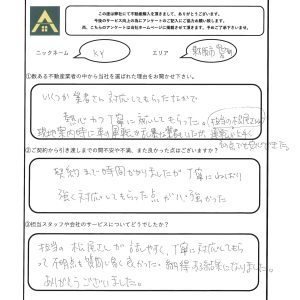 この度は弊社にて不動産購入を頂きまして、ありがとうございます。
今後のサービス向上の為にアンケートのご記入にご協力お願い致します。
尚、こちらのアンケートは当社ホームページに掲載させて頂きます。予めご了承下さいませ。
ニックネーム KY エリア
①数ある不動産業者の中から当社を選ばれた理由をお聞かせ下さい。
いくつか業者さん対応してもらったなかで
熱心かつ丁寧に対応してもらった。
現地案内時に車の運転が
②ご契約から引き渡しまでの間不安や不満、また良かった点はございますか?
契約まで時間かかりましたが丁寧に
強く対応してもらった点が心強かった
③担当スタッフや会社のサービスについてどうでしたか?
担当の松尾さんが話しやすく、丁寧に対応してもら
って不明点も質問し易く良かった。納得する結果になりました。
ありがとうございました。